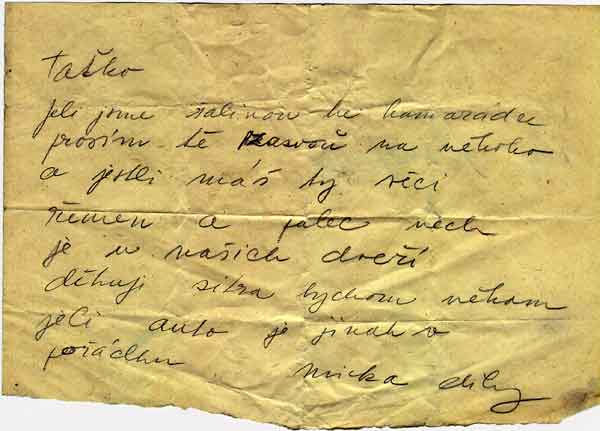 Taško
jeli jsme šalinou ke kamarádu
prosím tě zasvoň na někoho
a jestli máš ty věci
řemen a palec nech
je u našich dveří
děkuji zitra bychom někam
jeli auto je jinak v
pořádku micka díky